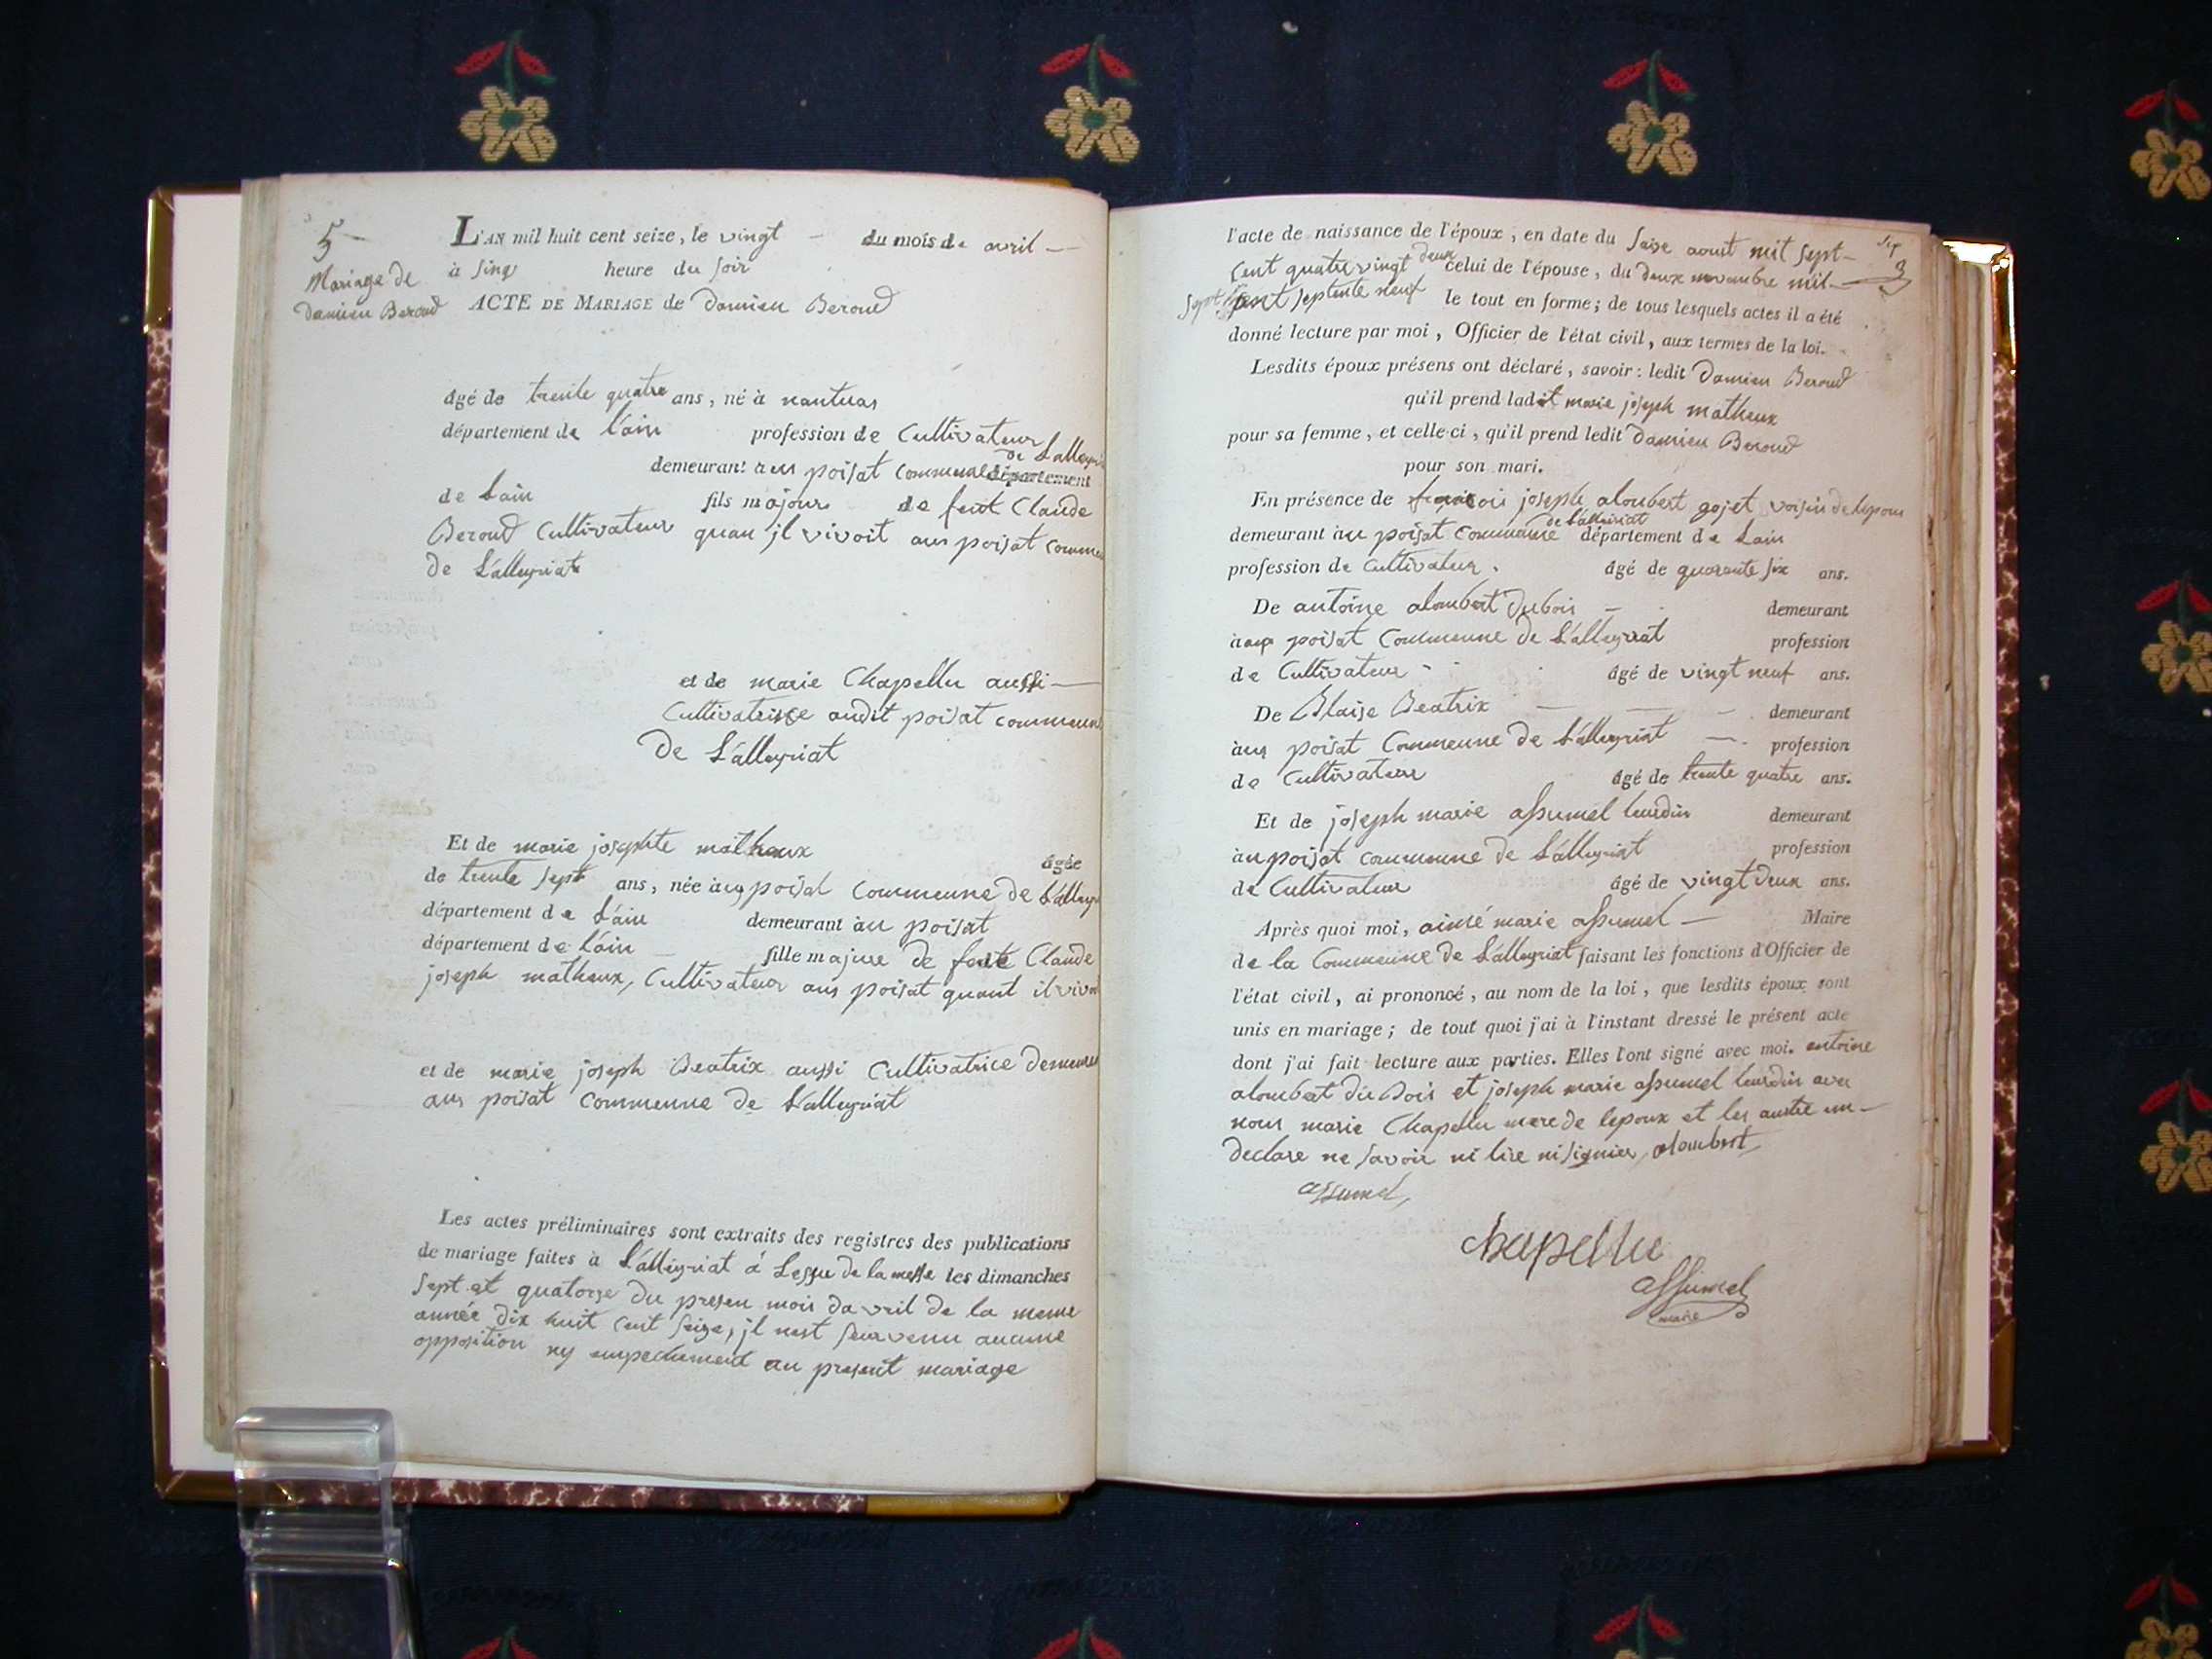 5
Mariage de
damien Beroud
L'AN mil huit cent seize, le vingt — du mois de avril —
à sinq heure du soir
ACTE DE MARIAGE de damien Beroud
âgé de trente quatre ans, né à nantuas
département de l'ain profession de Cultivateur
de L'alleyria
demeurant aus poisat commune département
de Lain fils majour de feut Claude
Beroud Cultivateur quan jl vivoit aus poisat commu
de L'alleyriat
et de marie Chapellu aussi —
Cultivatrisce audit poisat commune
De L'alleyriat
Et de marie josephte matheux âgée
de trente sept ans, née àus poisat Commeune de L'alleyr
département de L'ain demeurant àu poisat
département de l'ain — fille majure de feute Claude
joseph matheux, Cultivateur aus poisat quant il vivoi
et de marie joseph Beatrix aussi Cultivatrice demeure
aus poisat Commeune de L'alleyriat
Les actes préliminaires sont extraits des registres des publications
de mariage faites à L'alleyriat à Lessue de la messe les dimanches
sept et quatorze du presen mois davril de la meme
année dix huit Cent seize, jl nest seurvenu aucune
opposition ny empechement au present mariage
3
l'acte de naissance de l'époux, en date du seise aoust mil sept —
Cent quatre vingt deux celui de l'épouse, du deux novembre mil —
sept Cent septente neuf le tout en forme; de tous lesquels actes il a été
donné lecture par moi, Officier de l'état civil, aux termes de la loi.
Lesdits époux présens ont déclaré, savoir: ledit Damien Beroud
qu'il prend ladit marie joseph matheux
pour sa femme, et celle-ci, qu'il prend ledit Damien Beroud
pour son mari.
En présence de francois joseph aloubert gojet voisin de lepoux
de L'alleyriat
demeurant àu poisat Commeune département de Lain
profession de Cultivateur. âgé de quarante six ans.
De antoine aloubert Dubois — demeurant
àaus poisat Commeune de L'alleyriat profession
de Cultivateur âgé de vingt neuf ans.
De Blaise Beatrix — — — demeurant
àus poisat Commeune de L'alleyriat — profession
de Cultivateur âgé de trente quatre ans.
Et de joseph marie assumel lurdin demeurant
àu poisat Commeune de L'alleyriat profession
de Cultivateur âgé de vingt deux ans.
Après quoi moi, aimé marie assumel — Maire
de la Commeune de L'alleyriat faisant les fonctions d'Officier de
l'état civil, ai prononcé, au nom de la loi, que lesdits époux sont
unis en mariage; de tout quoi j'ai à l'instant dressé le présent acte
dont j'ai fait lecture aux parties. Elles l'ont signé avec moi. antoine
aloubert du Bois et joseph marie assumel lurdin avec
nous marie Chapellu mere de lepoux et les austre un —
Declare ne savoir ni lire ni signier, aloubert
assumel,
chapellu
assumel
maire